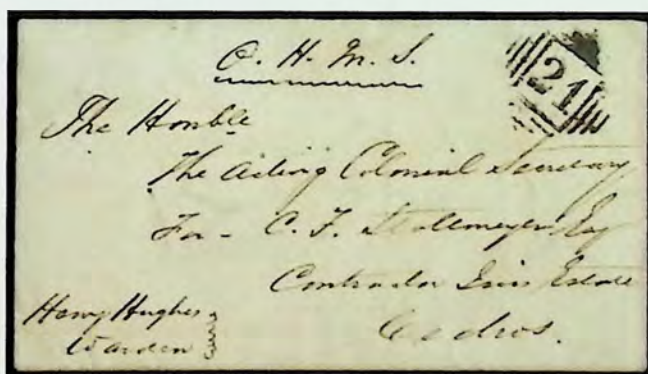 O. H. M. S.
21
The Honble
The Acting Colonial Secretary
For - C. F. Stollmeyer Esq
Contrador Estate
Cedros.
Harry Hughes
Warden